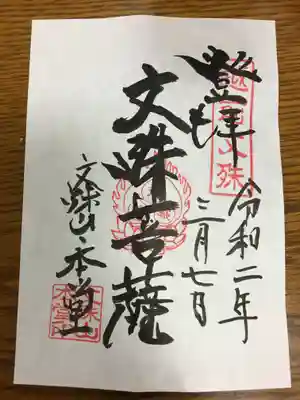 登拝
越前文殊
令和二年
三月七日
文殊菩薩
文殊山本堂